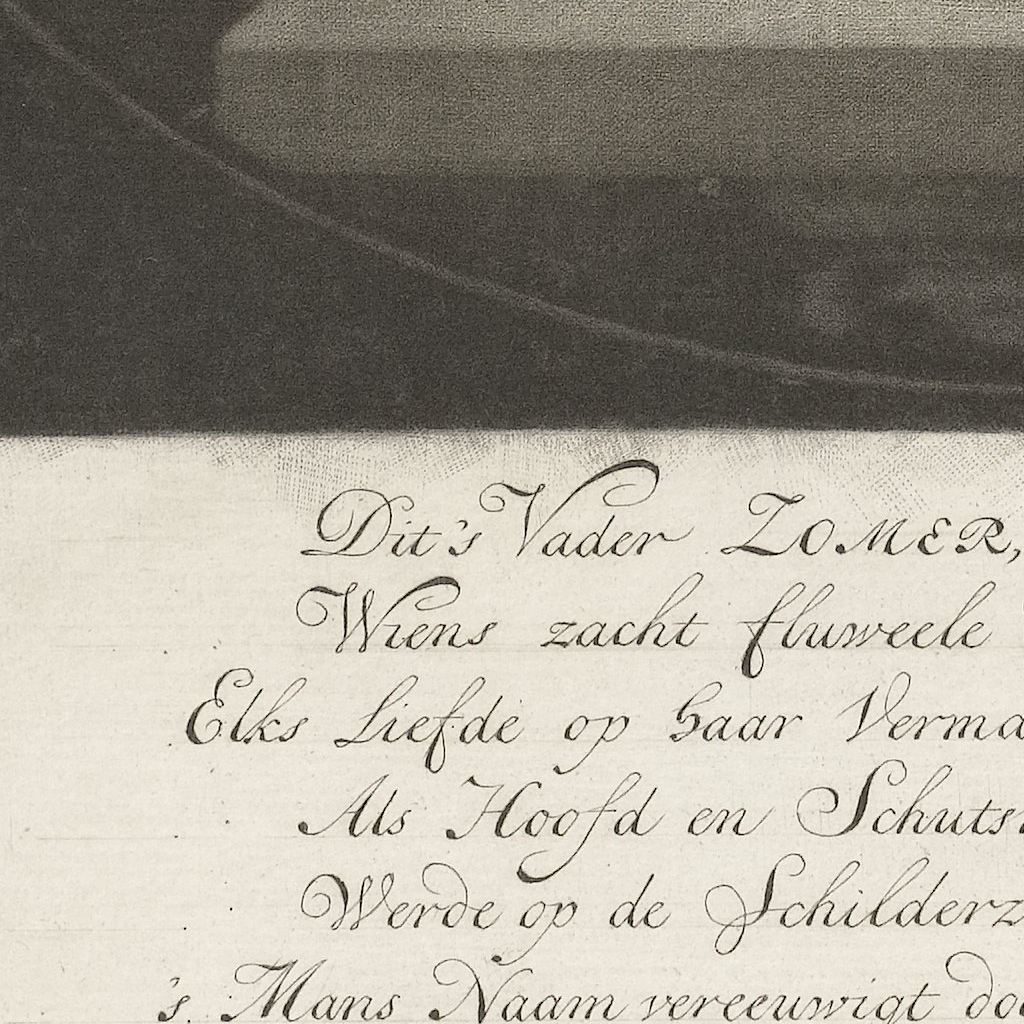 Dit's Vader ZOMER,
Wiens zacht fluweele
Elks Liefde op haar Verma
Als Hoofd en Schuts
Werde op de Schilderz
's Mans Naam vereeuwigt doo